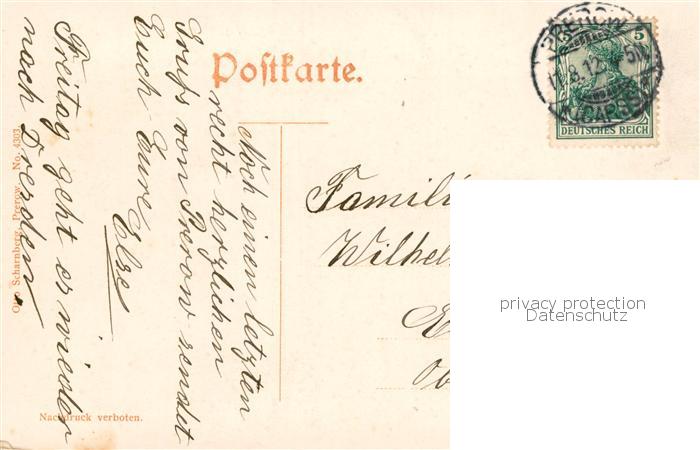 Postkarte.
Noch einen letzten
recht herzlichen
Gruß von Prerow sendet
Euch Eure
Else
Freitag geht es wieder
nach Dresden
Famili
Wilhel
PREROW
11.8.12
5
DEUTSCHES REICH
Otto Scharnberg, Prerow. No. 4303
Nachdruck verboten.
privacy protection
Datenschutz